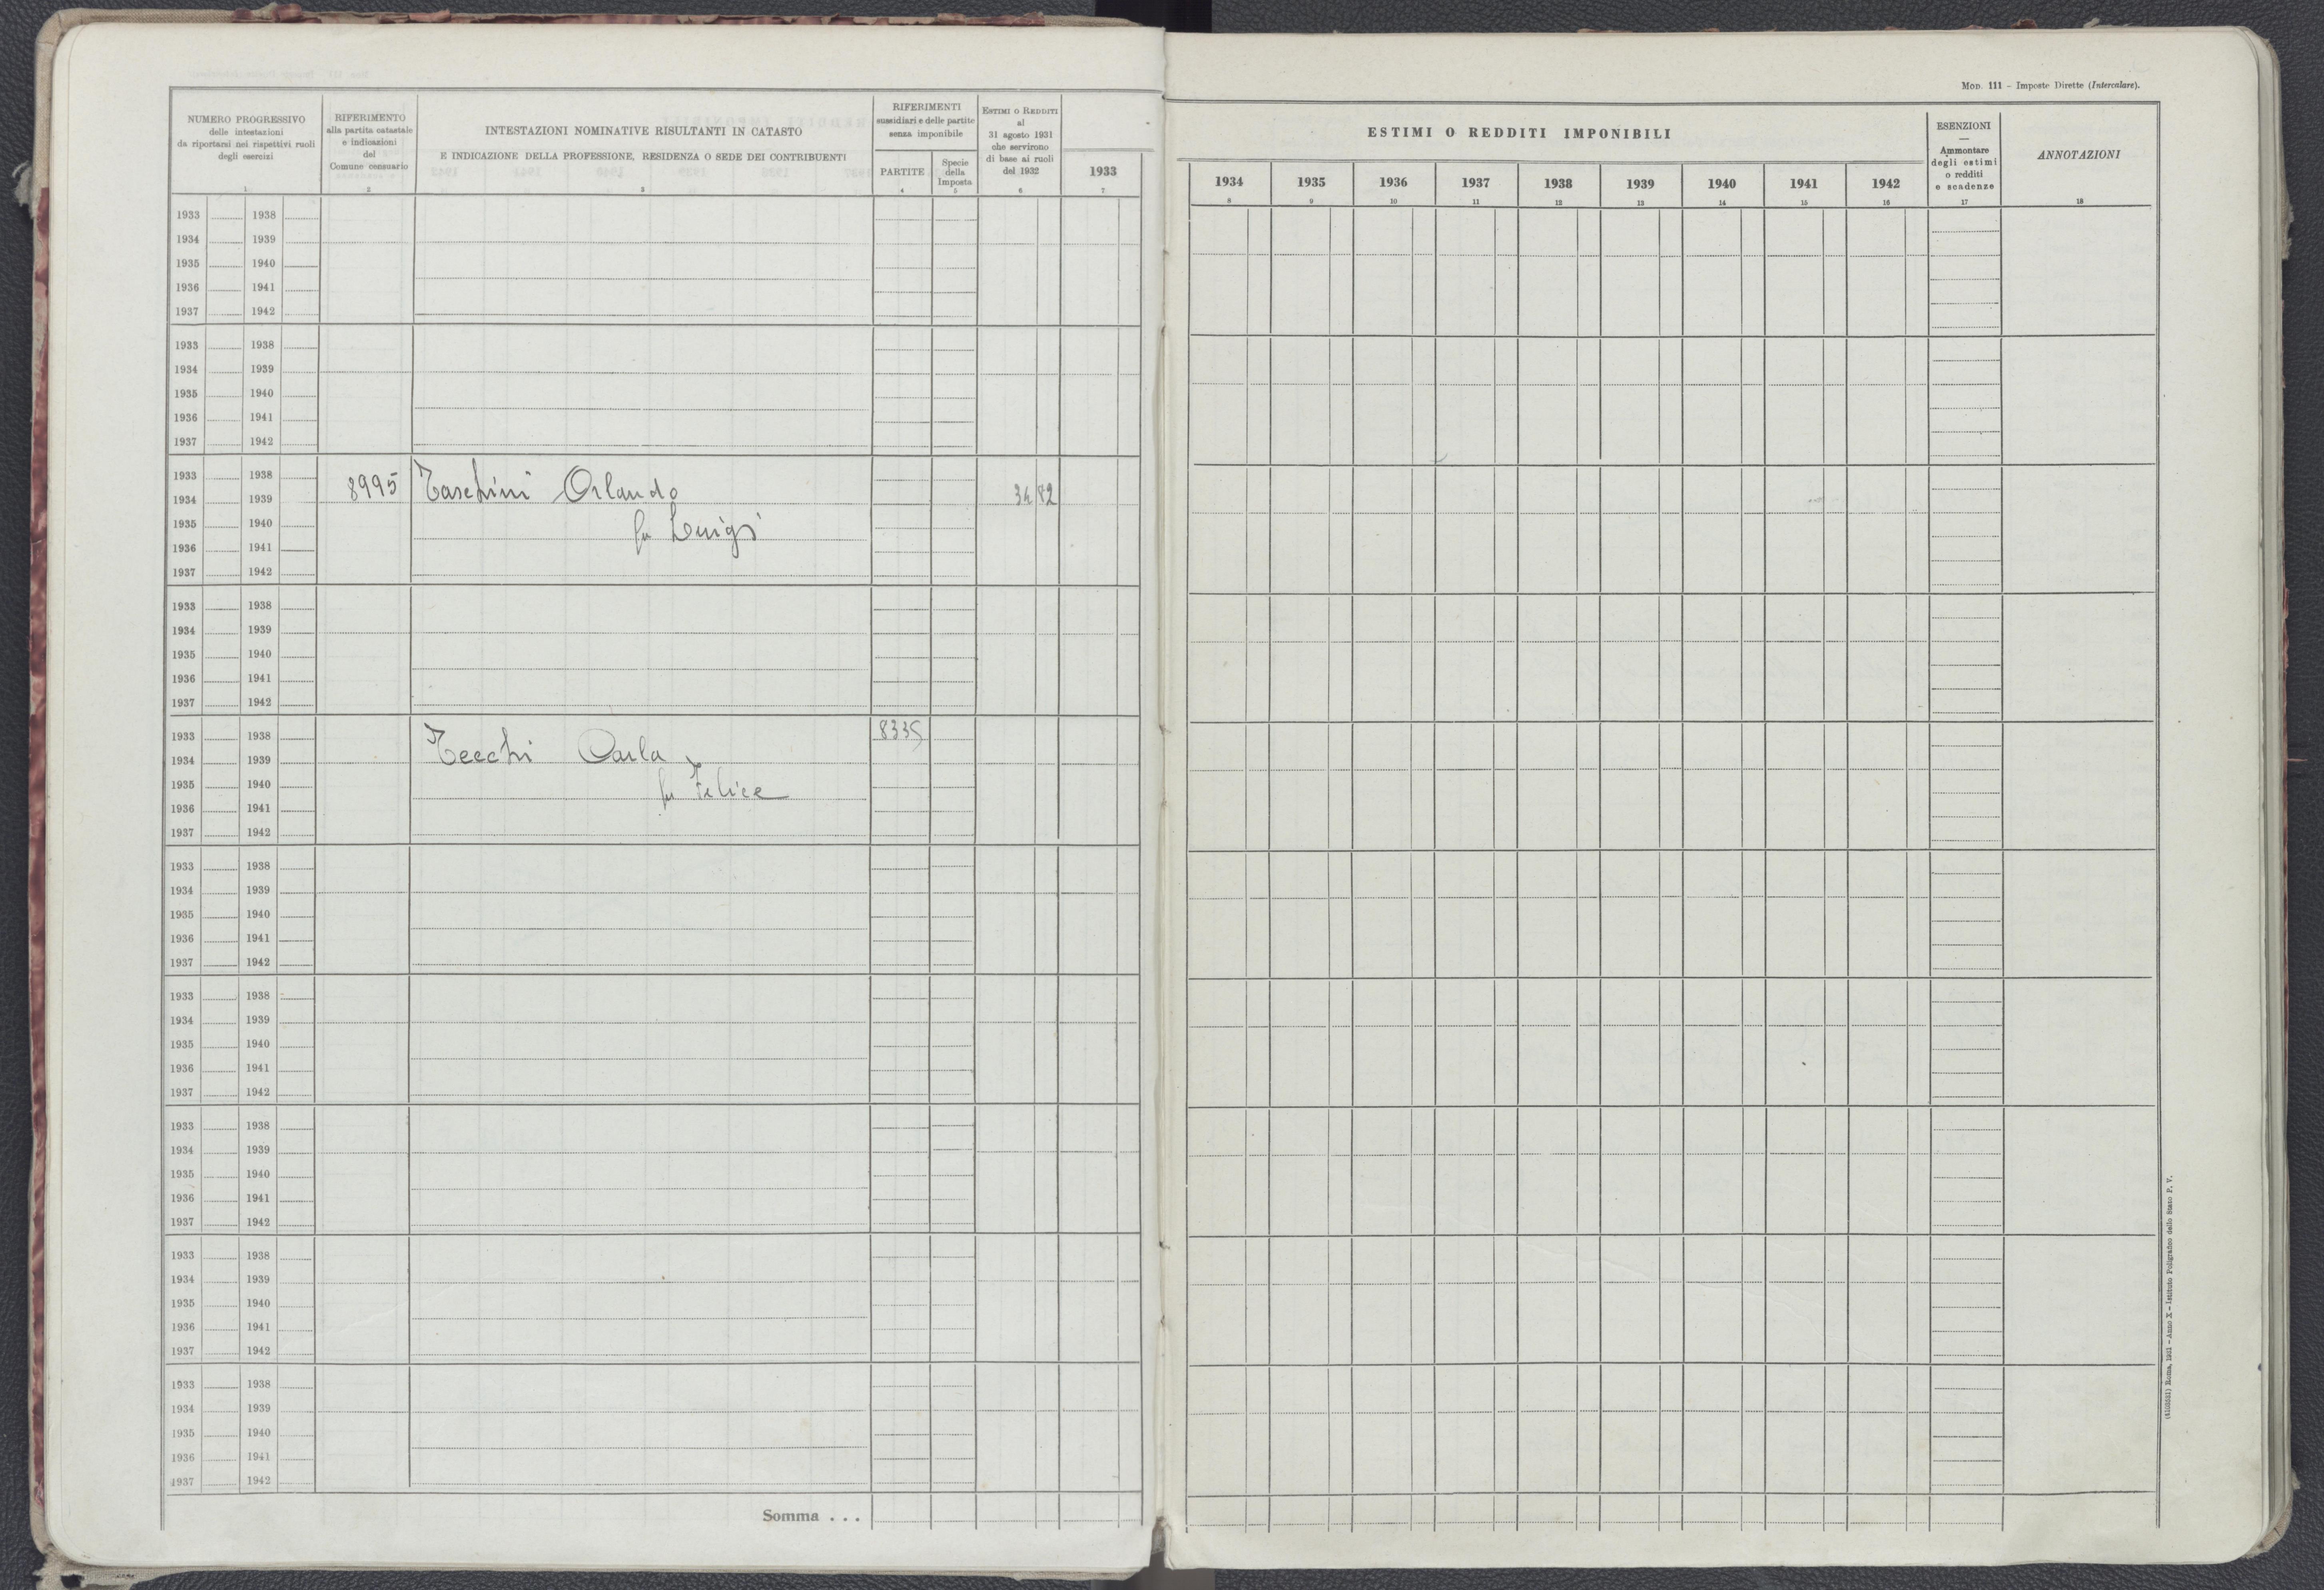 Mod. 111 - Imposte Dirette (Intercalare).
NUMERO PROGRESSIVO
delle intestazioni
da riportarsi nei rispettivi ruoli
degli esercizi
1
RIFERIMENTO
alla partita catastale
e indicazioni
del
Comune censuario
2
INTESTAZIONI NOMINATIVE RISULTANTI IN CATASTO
E INDICAZIONE DELLA PROFESSIONE, RESIDENZA O SEDE DEI CONTRIBUENTI
3
RIFERIMENTI
sussidiari e delle partite
senza imponibile
PARTITE
4
Specie
della
Imposta
5
Estimi o Redditi
al
31 agosto 1931
che servirono
di base ai ruoli
del 1932
6
1933
7
ESTIMI O REDDITI IMPONIBILI
1934 1935 1936 1937 1938 1939 1940 1941 1942
8 9 10 11 12 13 14 15 16
ESENZIONI
—
Ammontare
degli estimi
o redditi
e scadenze
17
ANNOTAZIONI
18
1933 1938
1934 1939
1935 1940
1936 1941
1937 1942
1933 1938
1934 1939
1935 1940
1936 1941
1937 1942
1933 1938
1934 1939 8995 Taschini Orlando 34 82
1935 1940 fu Luigi
1936 1941
1937 1942
1933 1938
1934 1939
1935 1940
1936 1941
1937 1942
1933 1938 8335
1934 1939 Tecchi Carla
1935 1940 fu Felice
1936 1941
1937 1942
1933 1938
1934 1939
1935 1940
1936 1941
1937 1942
1933 1938
1934 1939
1935 1940
1936 1941
1937 1942
1933 1938
1934 1939
1935 1940
1936 1941
1937 1942
1933 1938
1934 1939
1935 1940
1936 1941
1937 1942
1933 1938
1934 1939
1935 1940
1936 1941
1937 1942
Somma . . .
Roma, 1931 - Anno X - Istituto Poligrafico dello Stato P. V.